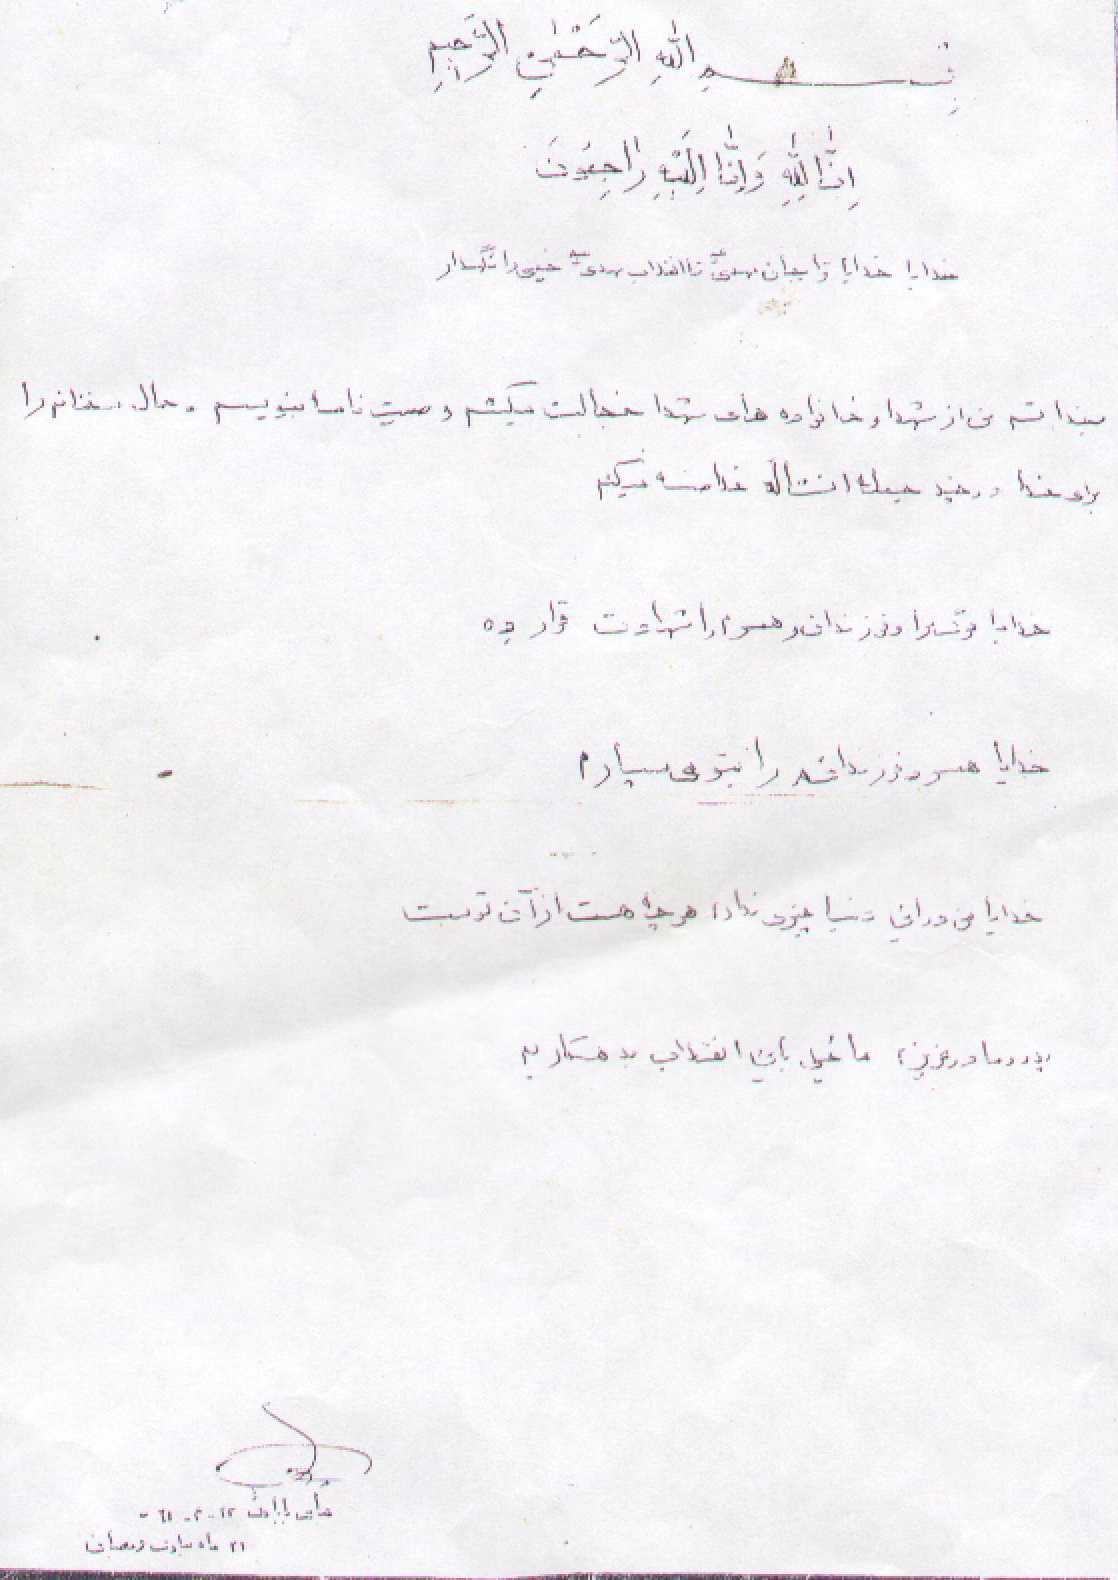 بِسـمِ اللهِ الرَّحْمٰنِ الرَّحیمِ
اِنّٰا لِلّٰهِ وَاِنّٰا اِلَیْهِ رٰاجِعوُنَ
خدایا خدایا ترا بجان مهدی تا انقلاب مهدی خمینی را نگهدار
من از شهدا و خانواده های شهدا خجالت میکشم وصیت نامه بنویسم و حال سخنانم را
برای خدا در چند جمله انشاالله خلاصه میکنم
خدایا مرگ مرا و فرزندان و همسرم را شهادت قرار ده
خدایا همسر و فرزندانم را بتو می سپارم
خدایا من در این دنیا چیزی ندارم هر چه هست از آن توست
پدر و مادر عزیزم ما خیلی باین انقلاب بدهکاریم
عباس بابائی
۲۱ ماه مبارک رمضان